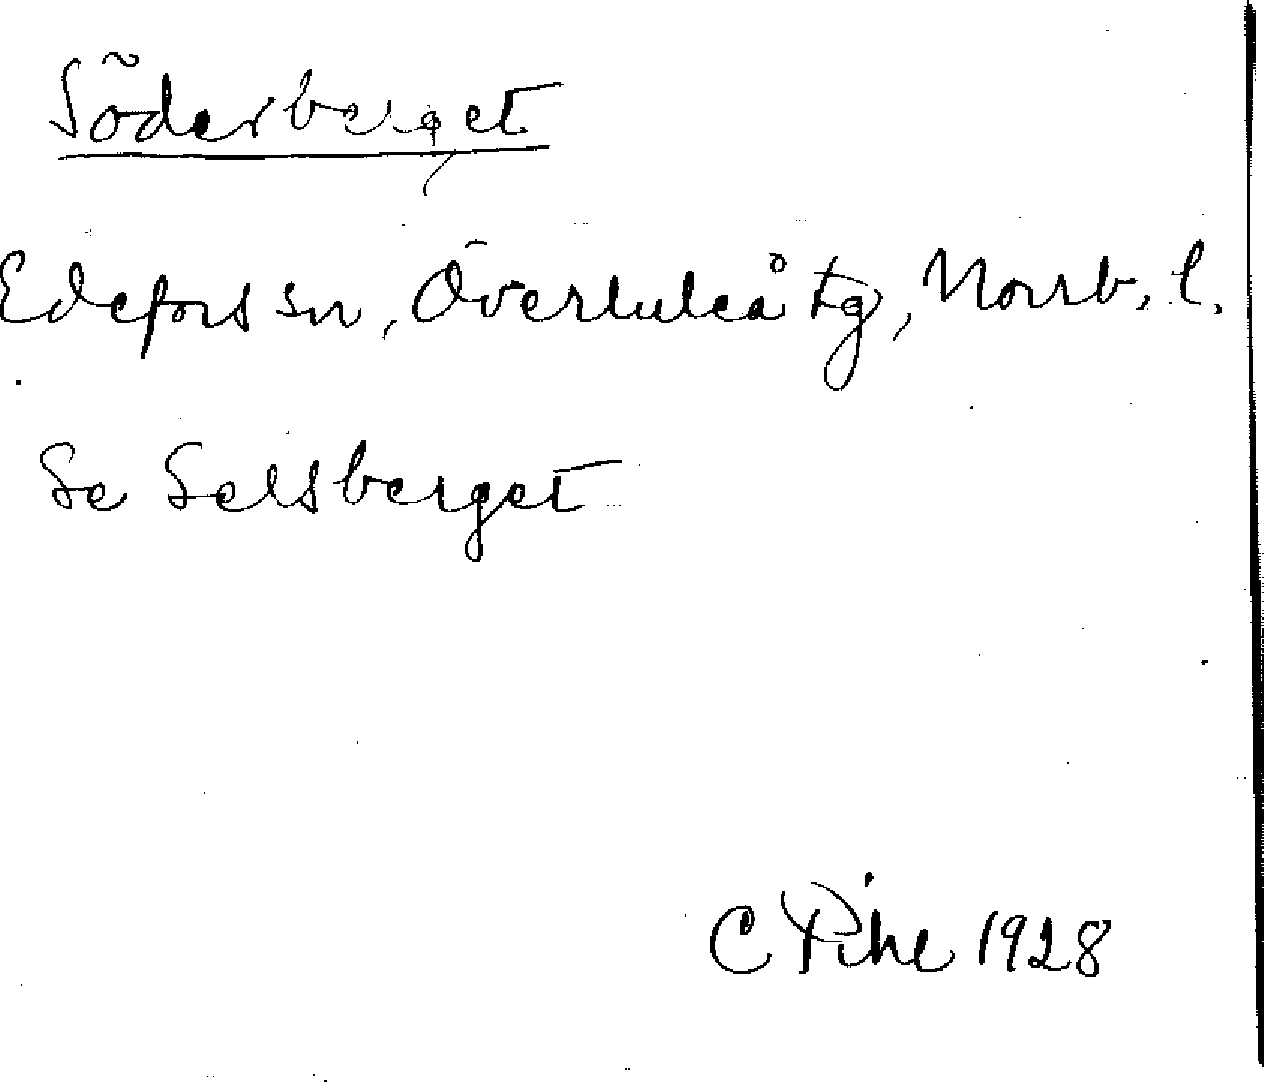 Söderberget
Edefors sn, Överluleå tg, Norrb. l.
Se Selsberget
C Pihl 1928